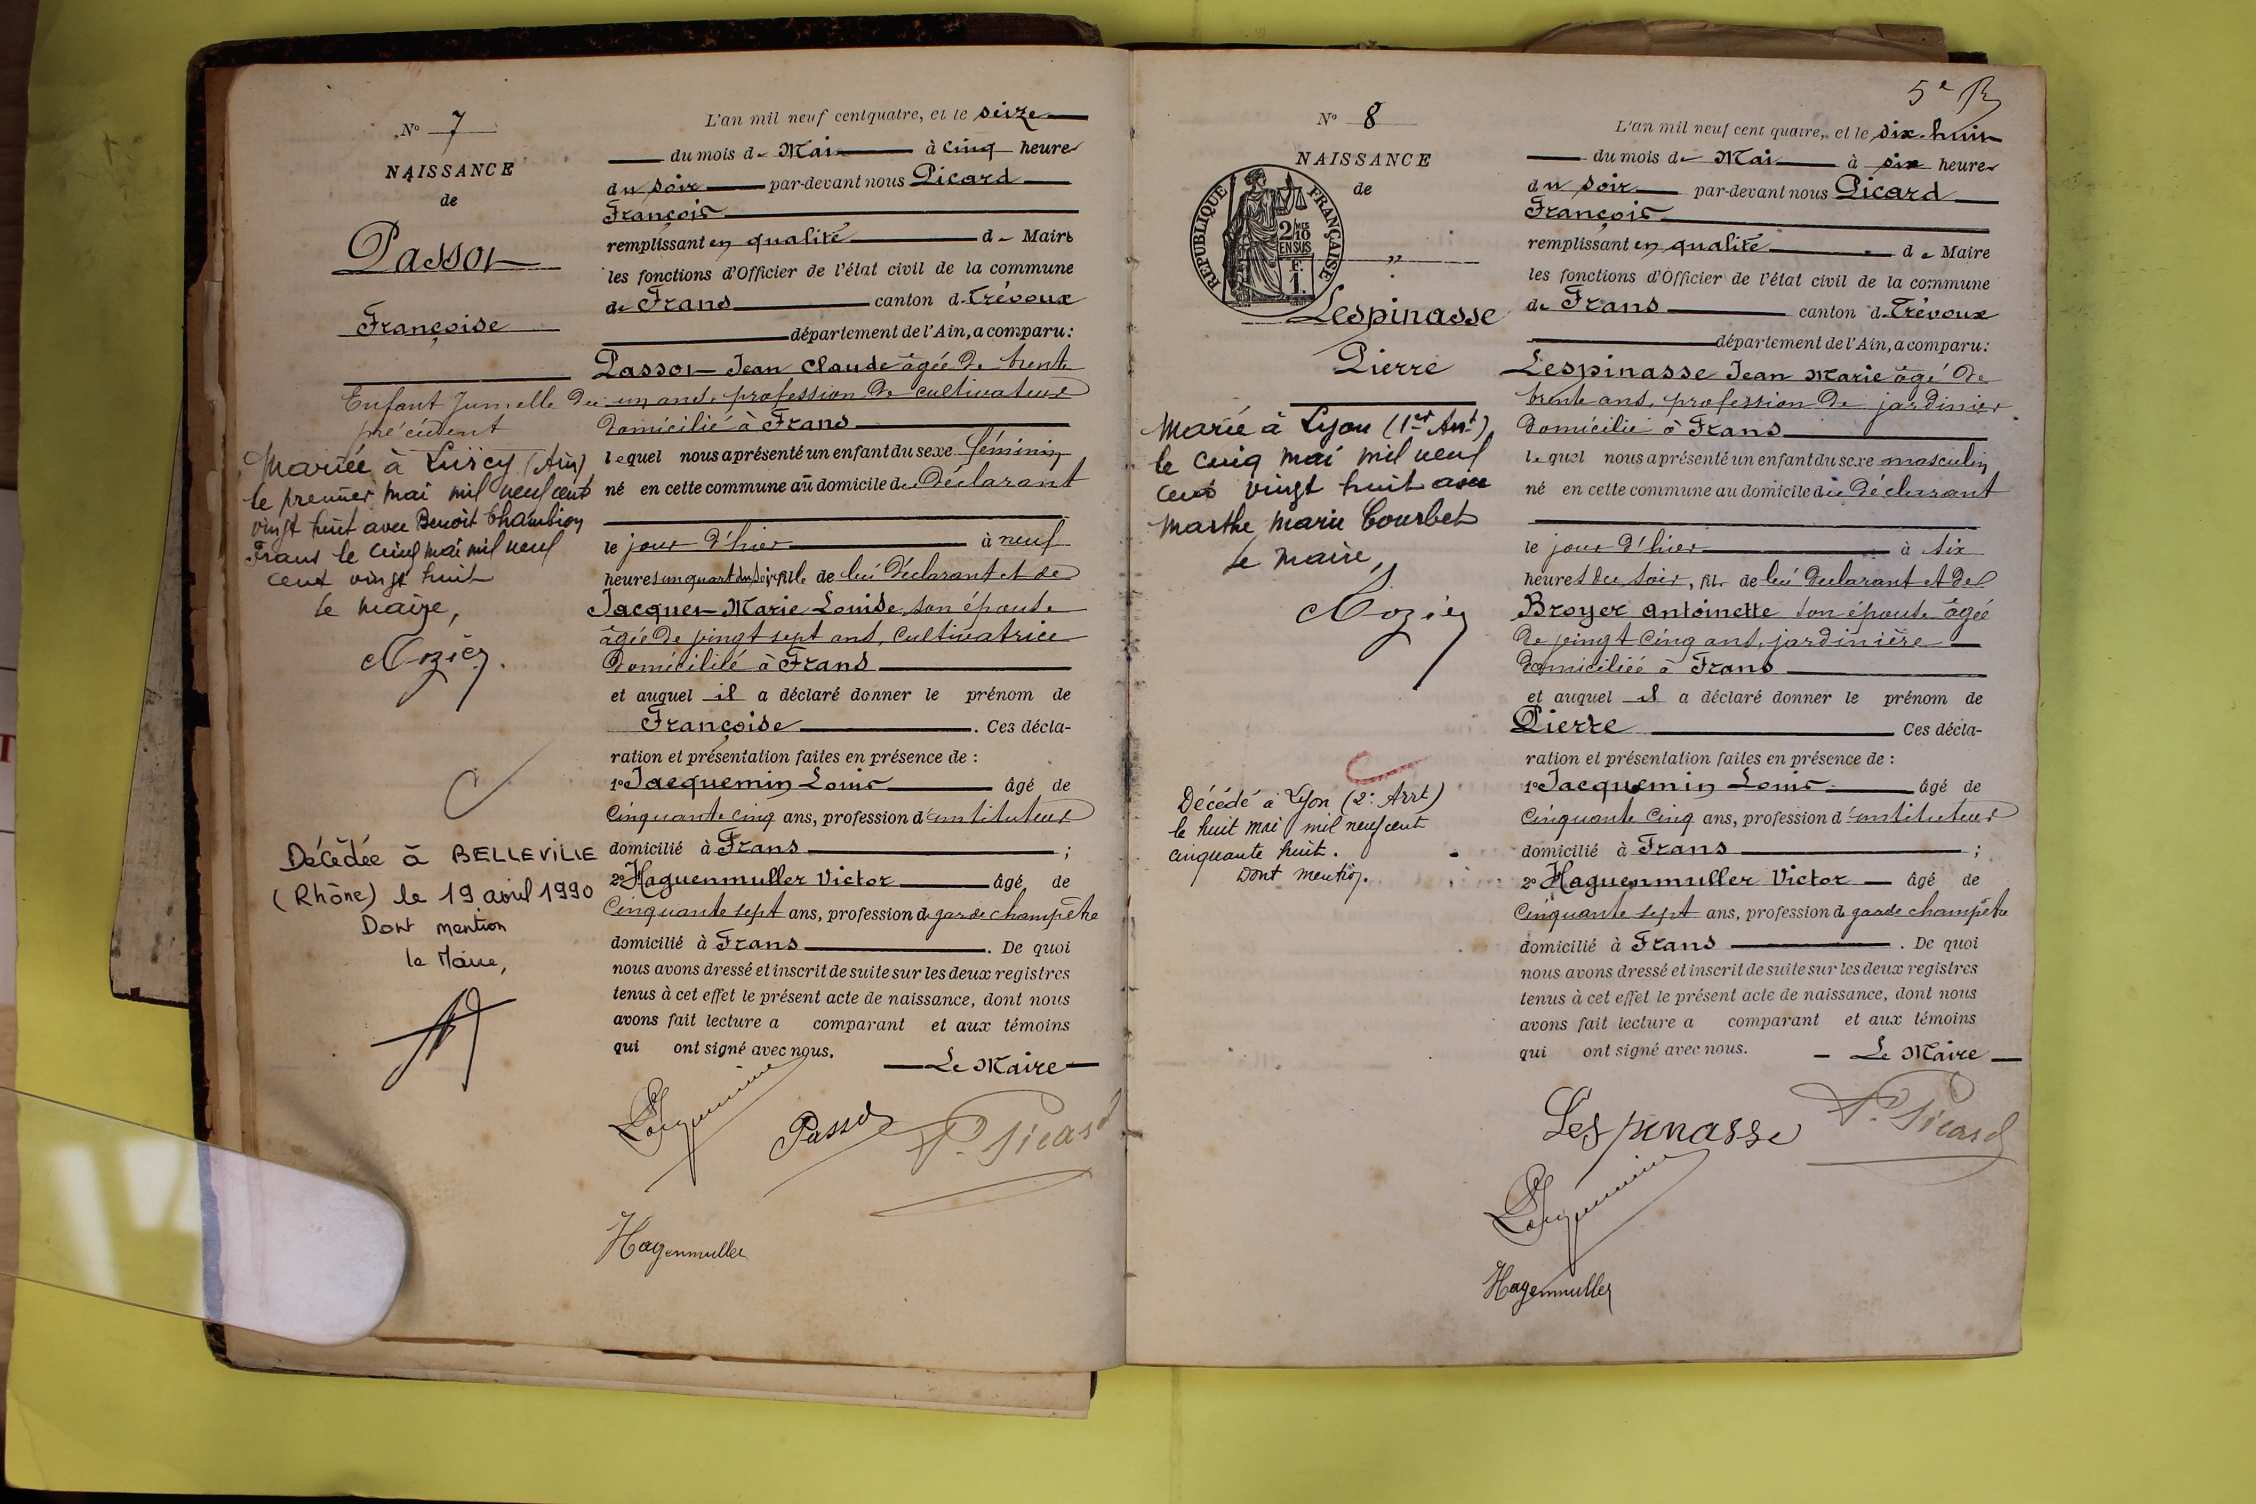 N° 7
NAISSANCE
de
Passot
Françoise
Enfant Jumelle du
précédent
Mariée à Lurcy (Ain)
le premier mai mil neuf cent
vingt huit avec Benoit Chambion
Frans le cinq mai mil neuf
cent vingt huit
Le maire,
Décédée à BELLEVILLE
(Rhône) le 19 avril 1990
Dont mention
le Maire,
L'an mil neuf cent quatre, et le seize
du mois de Mai à cinq heures
du soir par-devant nous Picard
François
remplissant en qualité de Maire
les fonctions d'Officier de l'état civil de la commune
de Frans canton de Trévoux
département de l'Ain, a comparu :
Passot Jean Claude âgée de trente
un ans, profession de cultivateur
domicilié à Frans
lequel nous a présenté un enfant du sexe féminin
né en cette commune au domicile du Déclarant
le jour d'hier à neuf
heures un quart du soir, fille de lui déclarant et de
Jacquet Marie Louise, son épouse
âgée de vingt sept ans, cultivatrice
domicilié à Frans
et auquel il a déclaré donner le prénom de
Françoise . Ces décla-
ration et présentation faites en présence de :
1° Jacquemin Louis âgé de
cinquante cinq ans, profession d'instituteur
domicilié à Frans ;
2° Haguenmuller Victor âgé de
cinquante sept ans, profession de garde champêtre
domicilié à Frans . De quoi
nous avons dressé et inscrit de suite sur les deux registres
tenus à cet effet le présent acte de naissance, dont nous
avons fait lecture a comparant et aux témoins
qui ont signé avec nous.
Le Maire
Jacquemin Passot F. Picard
Hagenmuller
5e
N° 8
NAISSANCE
de
REPUBLIQUE FRANÇAISE
2/10
EN SUS
1 F.
"
Lespinasse
Pierre
Marié à Lyon (1er Arrt)
le cinq mai mil neuf
cent vingt huit avec
Marthe Marie Courbet
Le maire,
Décédé à Lyon (2e Arrt)
le huit mai mil neuf cent
cinquante huit.
Dont mention.
L'an mil neuf cent quatre, et le dix-huit
du mois de Mai à six heures
du soir par-devant nous Picard
François
remplissant en qualité de Maire
les fonctions d'Officier de l'état civil de la commune
de Frans canton de Trévoux
département de l'Ain, a comparu :
Lespinasse Jean Marie âgé de
trente ans, profession de jardinier
domicilié à Frans
lequel nous a présenté un enfant du sexe masculin
né en cette commune au domicile du déclarant
le jour d'hier à six
heures du soir, fils de lui déclarant et de
Broyer Antoinette son épouse âgée
de vingt cinq ans, jardinière
domiciliée à Frans
et auquel il a déclaré donner le prénom de
Pierre Ces décla-
ration et présentation faites en présence de :
1° Jacquemin Louis âgé de
cinquante cinq ans, profession d'instituteur
domicilié à Frans ;
2° Haguenmuller Victor âgé de
cinquante sept ans, profession de garde champêtre
domicilié à Frans . De quoi
nous avons dressé et inscrit de suite sur les deux registres
tenus à cet effet le présent acte de naissance, dont nous
avons fait lecture a comparant et aux témoins
qui ont signé avec nous.
Le Maire
Lespinasse F. Picard
Jacquemin
Hagenmuller